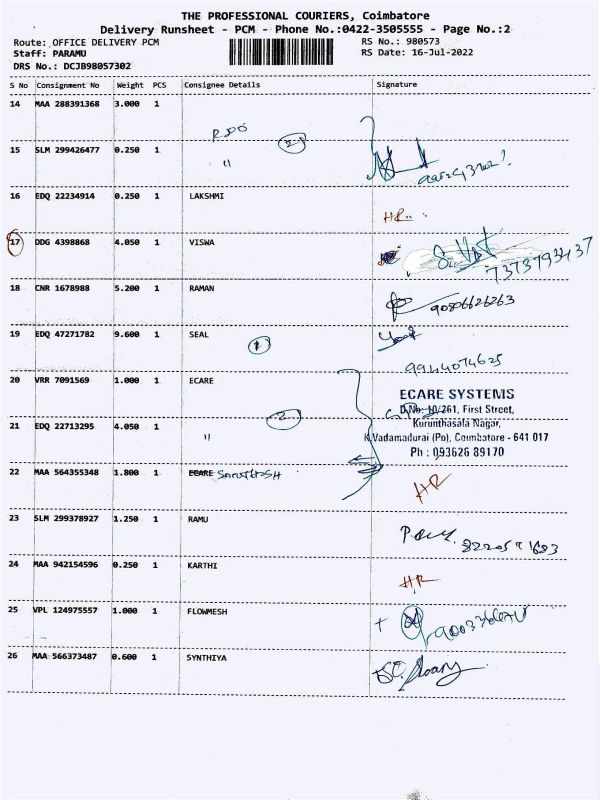 THE PROFESSIONAL COURIERS, Coimbatore
Delivery Runsheet - PCM - Phone No.:0422-3505555 - Page No.:2
Route: OFFICE DELIVERY PCM RS No.: 980573
Staff: PARAMU RS Date: 16-Jul-2022
DRS No.: DCJB98057302
S No Consignment No Weight PCS Consignee Details Signature
14 MAA 288391368 3.000 1
RDO
15 SLM 299426477 0.250 1 " 2
16 EDQ 22234914 0.250 1 LAKSHMI HR
17 DDG 4398868 4.050 1 VISWA
7373793437
18 CNR 1678988 5.200 1 RAMAN 90806626263
19 EDQ 47271782 9.600 1 SEAL 1
9944074625
20 VRR 7091569 1.000 1 ECARE
ECARE SYSTEMS
D.No: 10/261, First Street,
Kurunthasala Nagar,
K.Vadamadurai (Po), Coimbatore - 641 017
Ph : 093626 89170
21 EDQ 22713295 4.050 1 " 2
22 MAA 564355348 1.800 1 ECARE HR
23 SLM 299378927 1.250 1 RAMU
24 MAA 942154596 0.250 1 KARTHI HR
25 VPL 124975557 1.000 1 FLOWMESH
26 MAA 566373487 0.600 1 SYNTHIYA